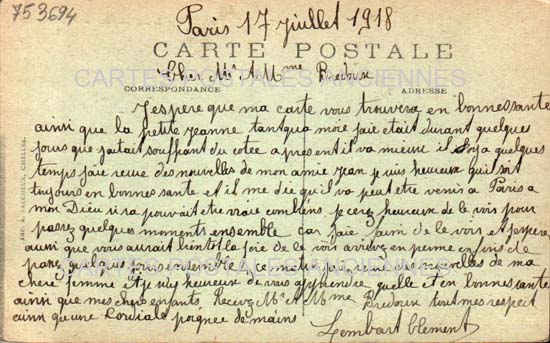 753694
Paris 17 juillet 1918
CARTE POSTALE
Cher Mr & Mme Bredoux
CORRESPONDANCE ADRESSE
J'espere que ma carte vous trouvera en bonne sante
ainsi que la petite jeanne tant qua moi jaie était durant quelques
jours que jaitait souffrant du cotee apresent il va mieux il Soja quelques
temps jaie reçue des nouvelles de mon amie jean je suis heureux qui soit
toujours en bonne sante et il me die qu'il va peut etre venir a Paris a
mon Dieu si sa pouvait etre vraie combiens je cerez heureux de le voir pour
passez quelques moments ensemble car jaie faim de le voir et j'espere
aussi que vous aurait bientot la joie de le voir arrivez en perme enfins de
passez quelques jours ensemble ce matin jaie reçue des nouvelles de ma
chere femme et je suis heureux de vous apprendre quelle et en bonne sante
ainsi que mes chers enfants. Recevez Mr et Mme Bredoux tout mes respect
ainsi qu'une Cordiale poignee de mains
Lombart Clement
IMP. E. FAUCHEUX, CHELLES
CARTES POSTALES ANCIENNES
CARTES POSTALES ANCIENNES